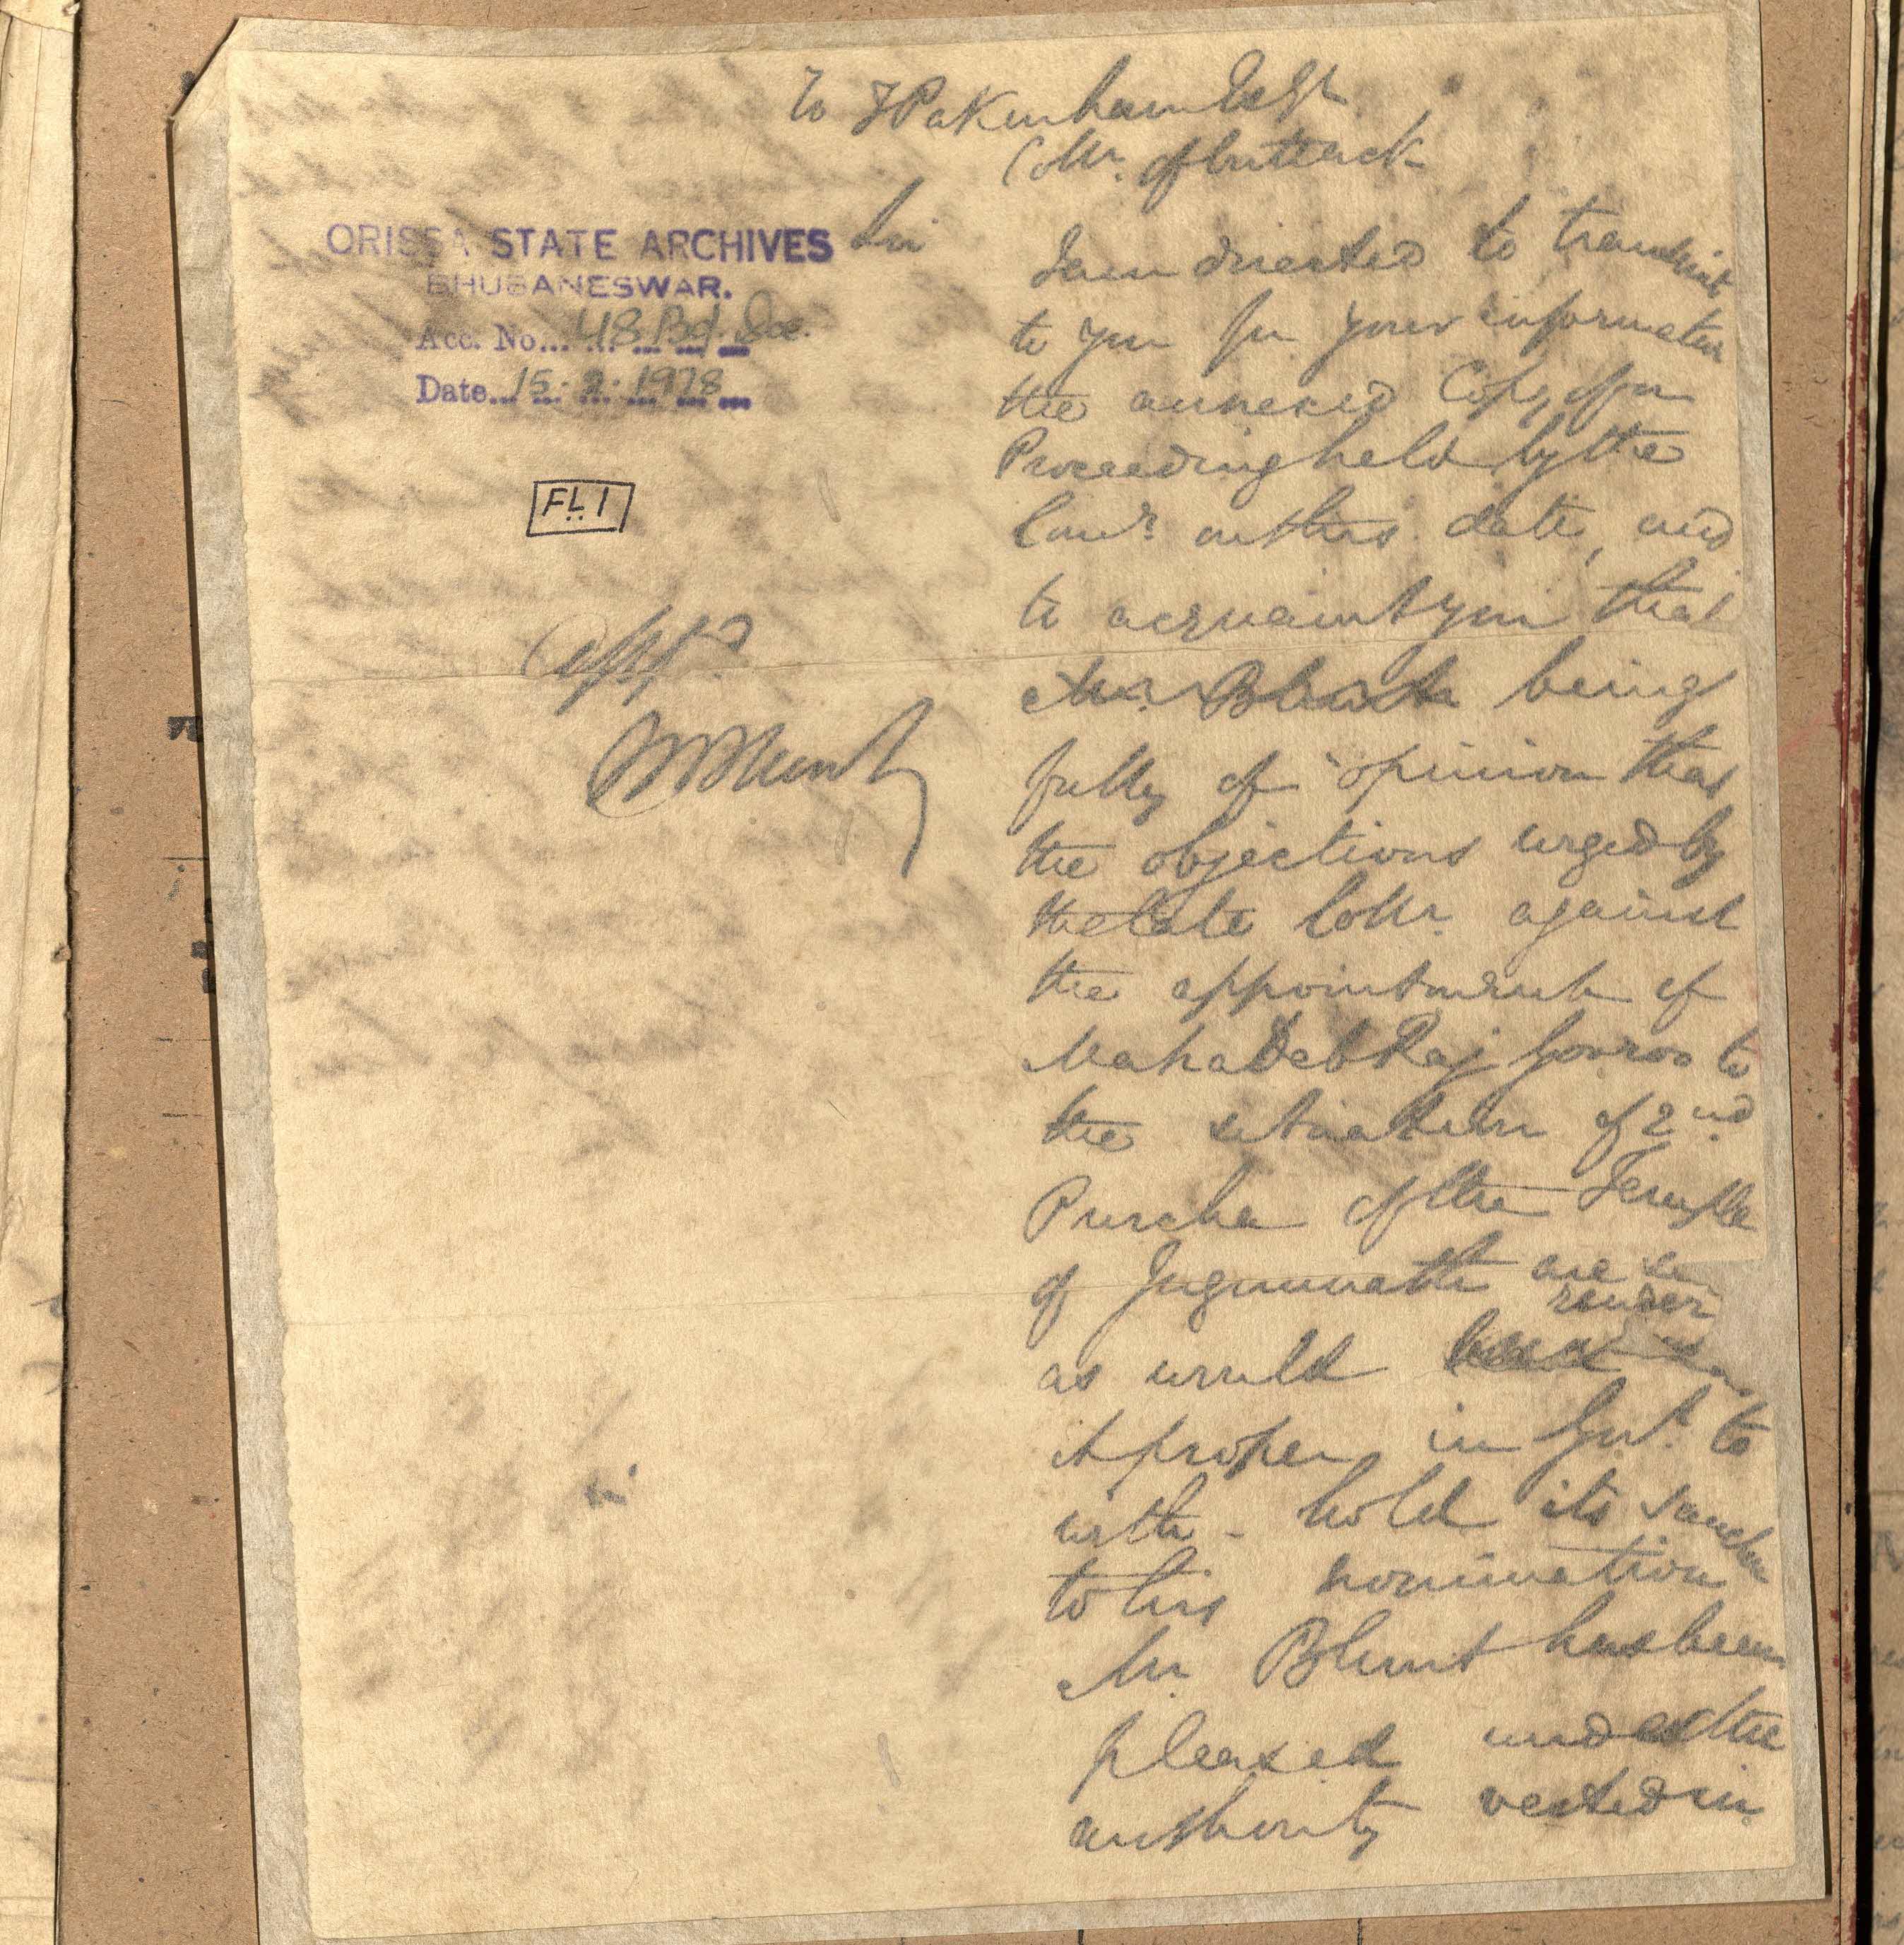 To T Pakenham Esqr
Collr. of Cuttack
ORISSA STATE ARCHIVES
BHUBANESWAR.
Acc. No... 48 Bd. Doc.
Date... 15.2.1978
FL.1
Sir
I am directed to transmit
to you for your information
the annexed Copy of a
Proceeding held by the
Comr. on this date, and
to acquaint you that
Mr. Blunt being
fully of opinion that
the objections urged by
the late Collr. against
the appointment of
Maha Deb Raj Gooroo to
the situation of 2nd
Purcha of the Temple
of Juggunnath are
render
as would
it proper in Govt. to
with-hold its sanction
to his nomination
Mr. Blunt has been
pleased under the
authority vested in
W Blunt